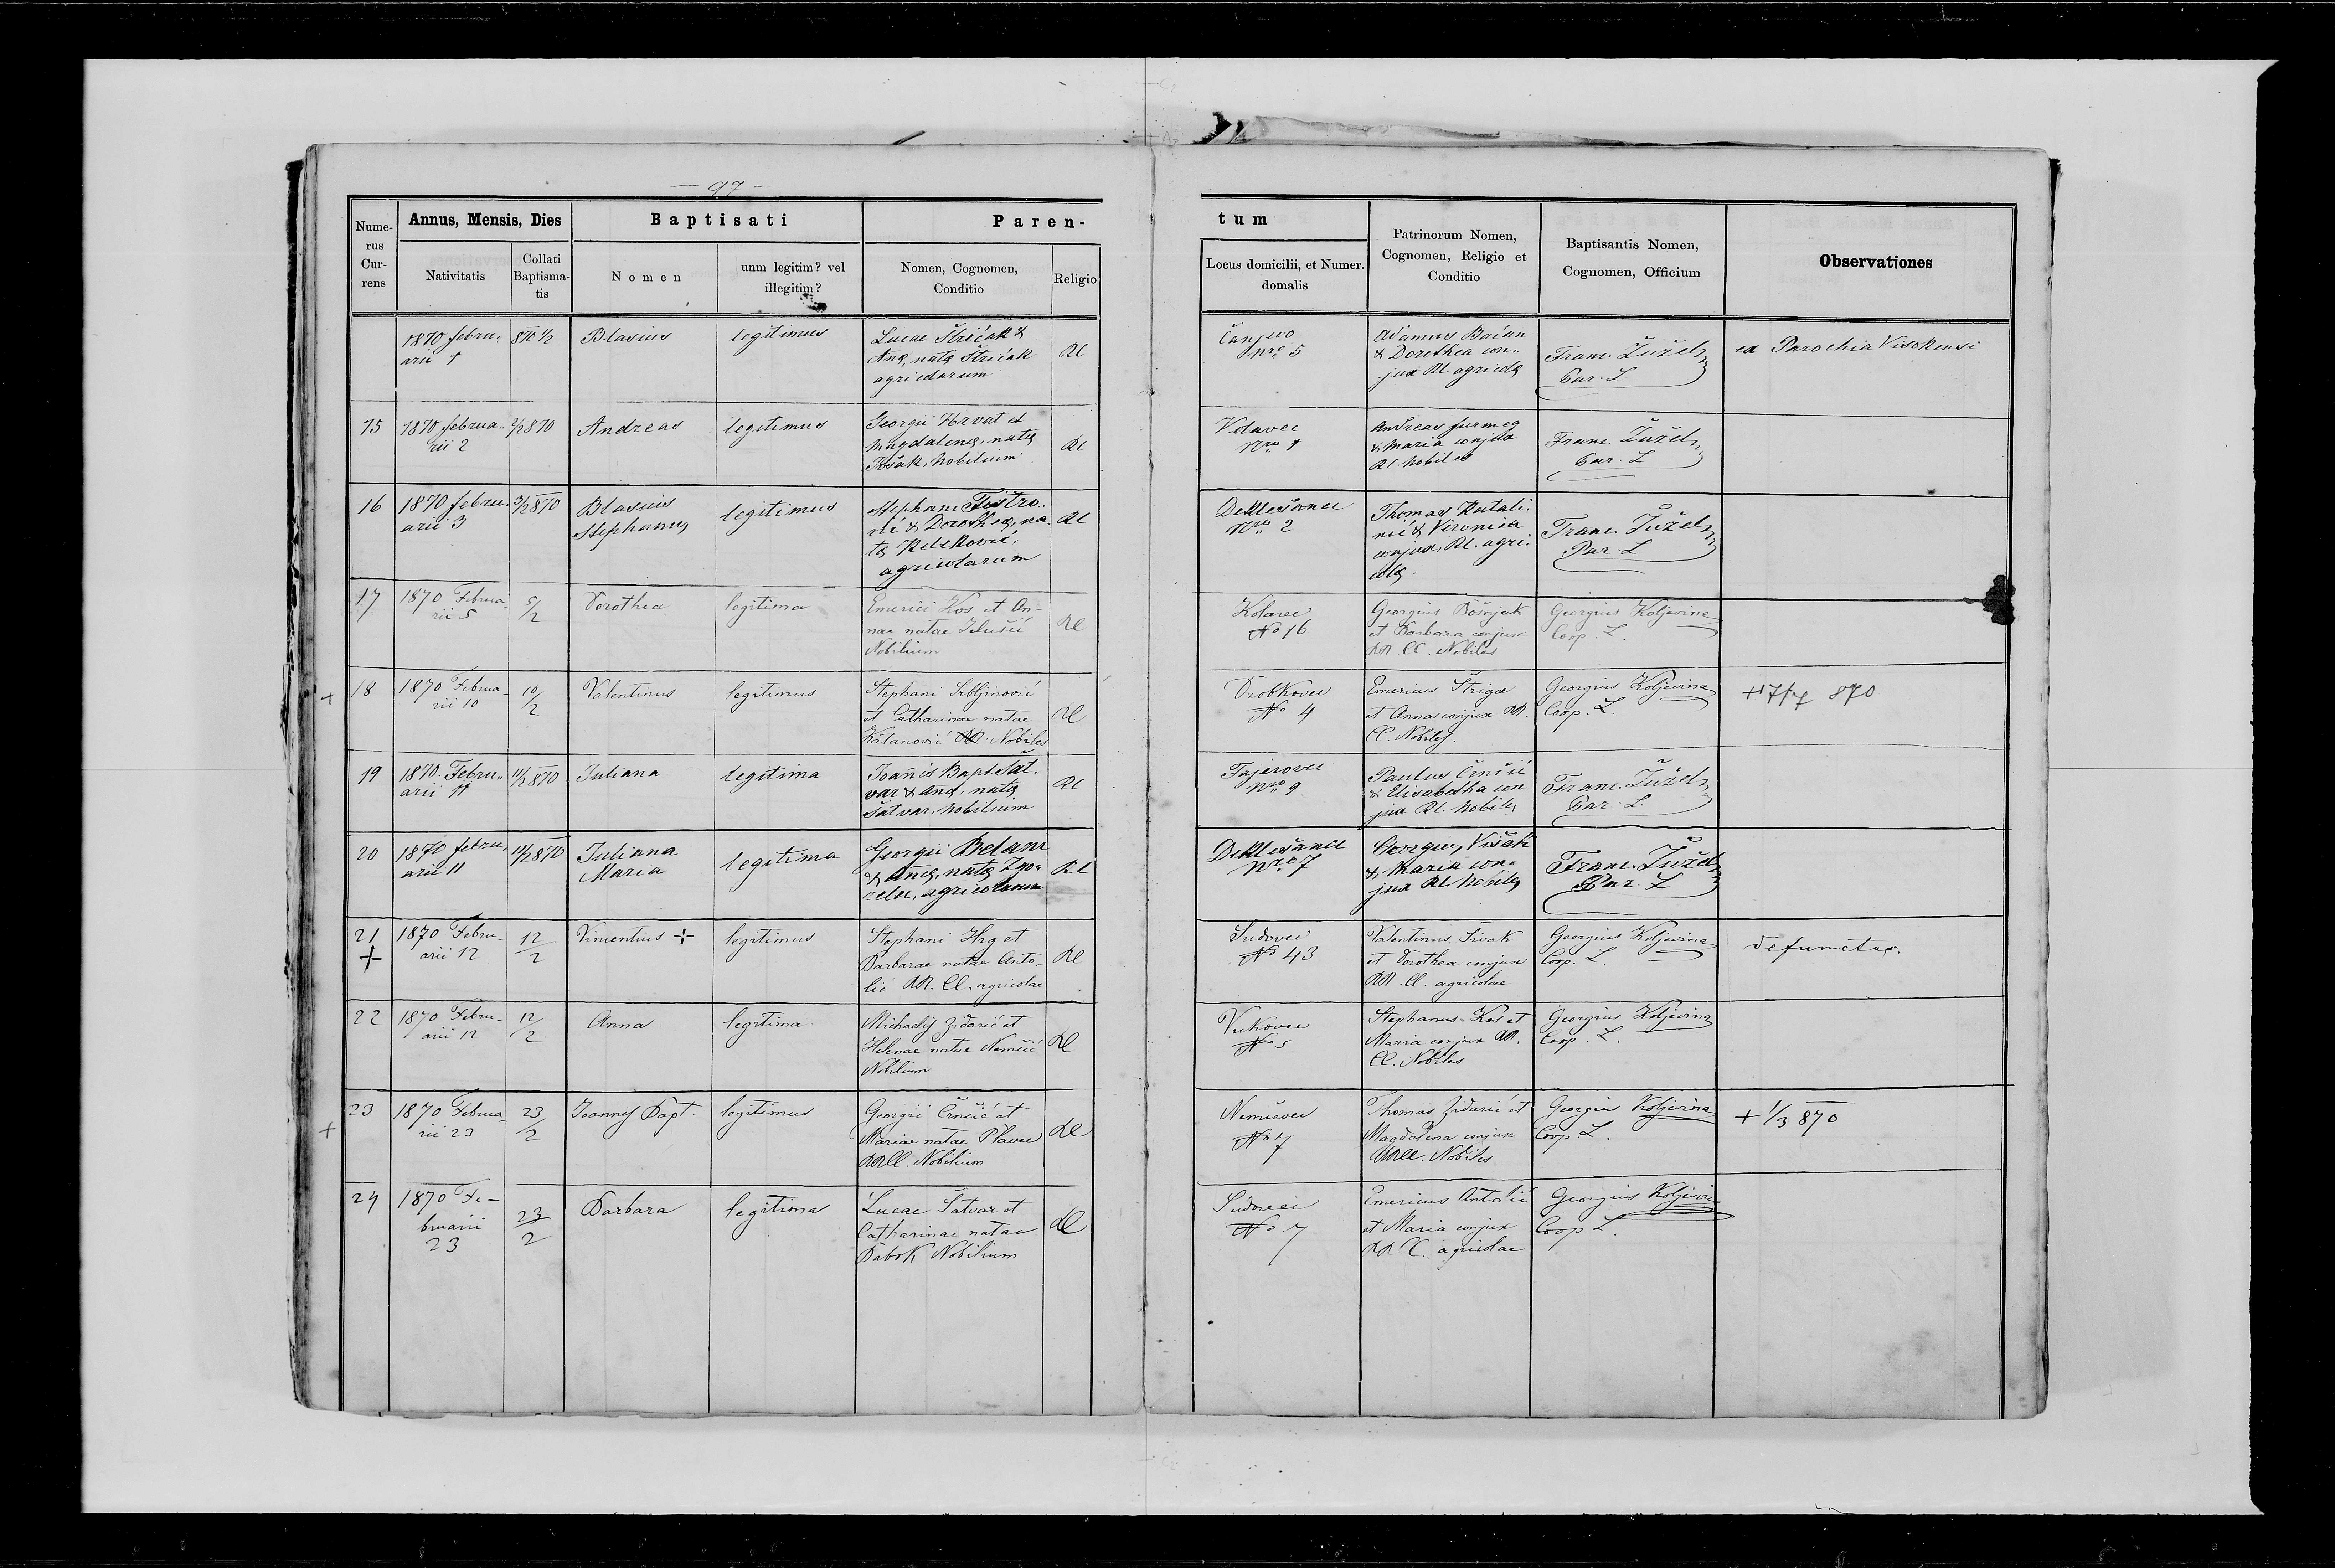 — 97 —
Nume-
rus
Cur-
rens
Annus, Mensis, Dies
Nativitatis
Collati
Baptisma-
tis
Baptisati
Nomen
unm legitim? vel
illegitim?
Paren-
Nomen, Cognomen,
Conditio
Religio
tum
Locus domicilii, et Numer.
domalis
Patrinorum Nomen,
Cognomen, Religio et
Conditio
Baptisantis Nomen,
Cognomen, Officium
Observationes
1870 febru-
arii 1
870 1/2
Blasius
legitimus
Lucae Štričak &
Anę, natę Štričak
agricolarum
Rl
Čanjevo
Nro 5
Adamus Bačan
& Dorothea con-
jux Rl. agricolę
Franc. Žužel
Par. L
ex Parochia Visokensi
15
1870 februa-
rii 2
2/2 870
Andreas
legitimus
Georgii Hrvat et
Magdalenę, natę
nobilium
Rl
Vdavec
Nro 1
Andreas
& Maria conjux
Rl. nobiles
Franc. Žužel
Par. L
16
1870 febru-
arii 3
3/2 870
Blasius
Stephanus
legitimus
Stephani
& Dorotheę, na-
tę
agricolarum
Rl
Deklešanec
Nro 2
Thomas Katali-
nić & Veronica
conjux, Rl. agri-
colę
Franc. Žužel
Par. L
17
1870 Februa-
rii 5
5/2
Dorothea
legitima
Emerici Kos et An-
nae natae
Nobilium
Rl
Kolarec
No 16
Georgius Bošnjak
et Barbara conjux
RR. CC. Nobiles
Georgius Koljevina
Coop. L.
+ 18
1870 Februa-
rii 10
10/2
Valentinus
legitimus
Stephani Srbljinović
et Catharinae natae
Katanović Nobiles
Rl
Drobkovec
No 4
Emericus Štriga
et Anna conjux RR.
CC. Nobiles
Georgius Koljevina
Coop. L.
+ 17/7 870
19
1870 Febru-
arii 11
11/2 870
Juliana
legitima
Joannis Bapt. Šat-
var & Anę, natę
Šatvar, nobilium
Rl
Fajerovec
Nro 9
Paulus Črnčić
& Elisabetha con
jux Rl. nobiles
Franc. Žužel
Par. L.
20
1870 febru-
arii 11
11/2 870
Juliana
Maria
legitima
Georgii Belani
& Anę, natę Zgo-
relec, agricolarum
Rl
Deklešanec
Nro 7
Georgius Višak
& Maria con-
jux Rl. nobiles
Franc. Žužel
Par. L
21
+
1870 Febru-
arii 12
12/2
Vincentius +
legitimus
Stephani Hrg et
Barbarae natae Anto-
lić RR. CC. agricolae
Rl
Sudovec
No 43
Valentinus Sivak
et Dorothea conjux
RR. CC. agricolae
Georgius Koljevina
Coop. L.
defunctus.
22
1870 Febru-
arii 12
12/2
Anna
legitima
Michaelis Zidarić et
Helenae natae Nemčić
Nobilium
Rl
Vukovec
No 5
Stephanus Kos et
Maria conjux RR.
CC. Nobiles
Georgius Koljevina
Coop. L.
+ 23
1870 Februa-
rii 23
23/2
Joannes Bapt.
legitimus
Georgii Črnčić et
Mariae natae Plavec
RRCC. Nobilium
Rl
Nemčevec
No 7
Thomas Zidarić et
Magdalena conjux
RRCC. Nobiles
Georgius Koljevina
Coop. L.
+ 1/3 870
24
1870 Fe-
bruarii
23
23/2
Barbara
legitima
Lucae Šatvar et
Catharinae natae
Dabok Nobilium
Rl
Sudovec
No 7
Emericus Antolić
et Maria conjux
RR C. agricolae
Georgius Koljevina
Coop. L.